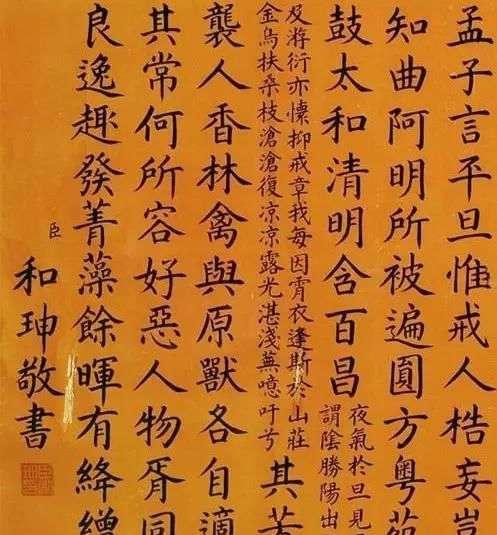 孟子言平旦惟戒人梏妄豈
知曲阿明所被遍圓方粵苑
鼓太和清明含百昌
夜氣於旦見
謂陰勝陽出
及游衍亦懍抑戒章我每因宵衣逢斯於山莊
金烏扶桑枝滄滄復凉凉露光湛淺蕪噫吁兮
其苦
襲人香林禽與原獸各自適
其常何所容好惡人物胥同
良逸趣發菁藻餘暉有絳繒
臣和珅敬書